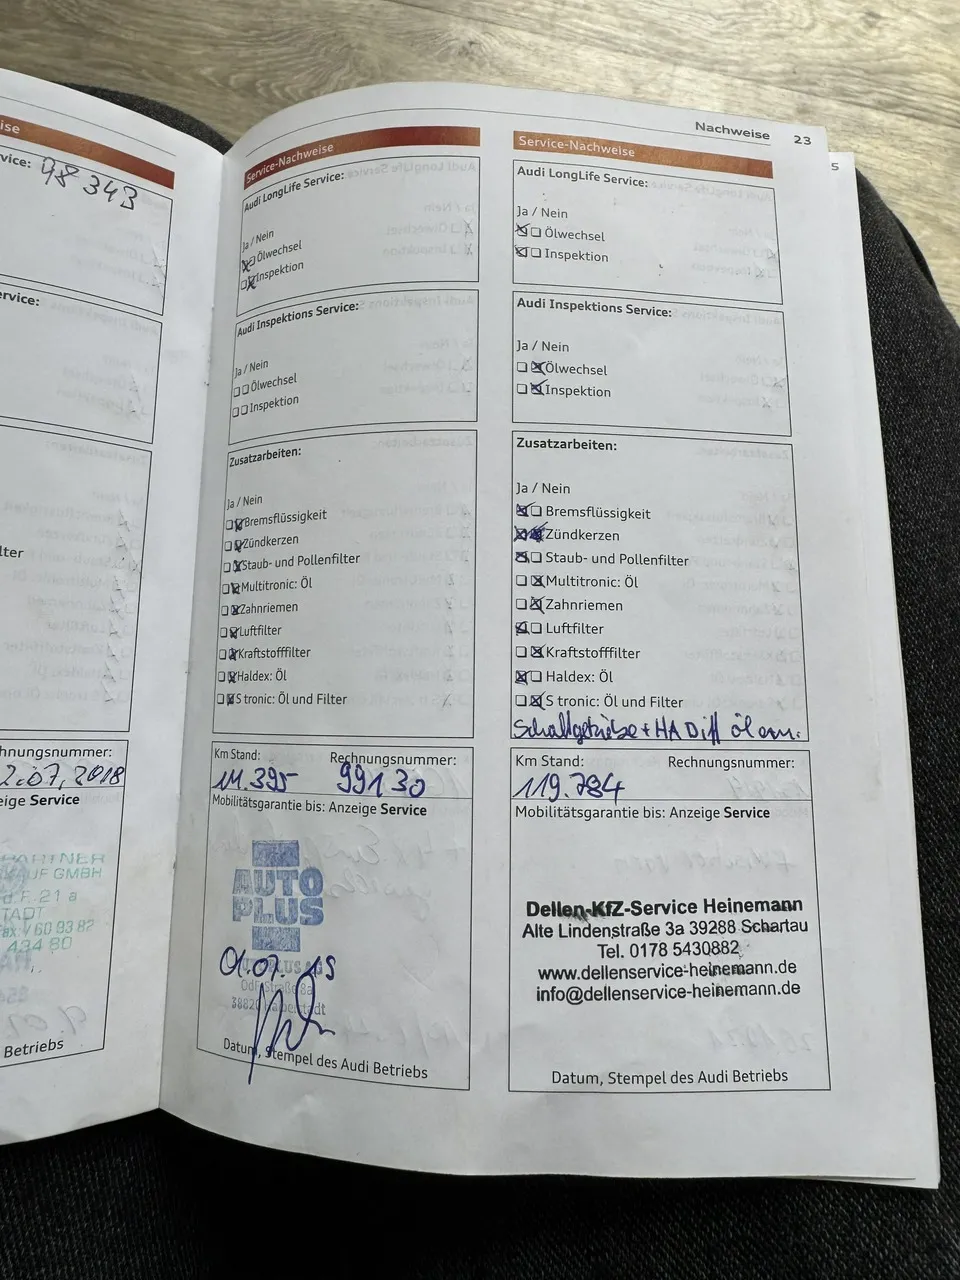 Nachweise 23
5
ise
vice: 98343
ervice:
lter
hnungsnummer:
2.07.2018
eige Service
PARTNER
UF GMBH
d.F. 21 a
TADT
60 93 82
434 80
Betriebs
Service-Nachweise
Audi LongLife Service:
Ja / Nein
Ölwechsel
Inspektion
Audi Inspektions Service:
Ja / Nein
Ölwechsel
Inspektion
Zusatzarbeiten:
Ja / Nein
Bremsflüssigkeit
Zündkerzen
Staub- und Pollenfilter
Multitronic: Öl
Zahnriemen
Luftfilter
Kraftstofffilter
Haldex: Öl
S tronic: Öl und Filter
Km Stand: Rechnungsnummer:
111.395 99130
Mobilitätsgarantie bis: Anzeige Service
AUTO
PLUS
38820 Halberstadt
Datum, Stempel des Audi Betriebs
Service-Nachweise
Audi LongLife Service:
Ja / Nein
Ölwechsel
Inspektion
Audi Inspektions Service:
Ja / Nein
Ölwechsel
Inspektion
Zusatzarbeiten:
Ja / Nein
Bremsflüssigkeit
Zündkerzen
Staub- und Pollenfilter
Multitronic: Öl
Zahnriemen
Luftfilter
Kraftstofffilter
Haldex: Öl
S tronic: Öl und Filter
Schaltgetriebe + HA Diff öl ern.
Km Stand: Rechnungsnummer:
119.784
Mobilitätsgarantie bis: Anzeige Service
Dellen-KfZ-Service Heinemann
Alte Lindenstraße 3a 39288 Schartau
Tel. 0178 5430882
www.dellenservice-heinemann.de
info@dellenservice-heinemann.de
Datum, Stempel des Audi Betriebs